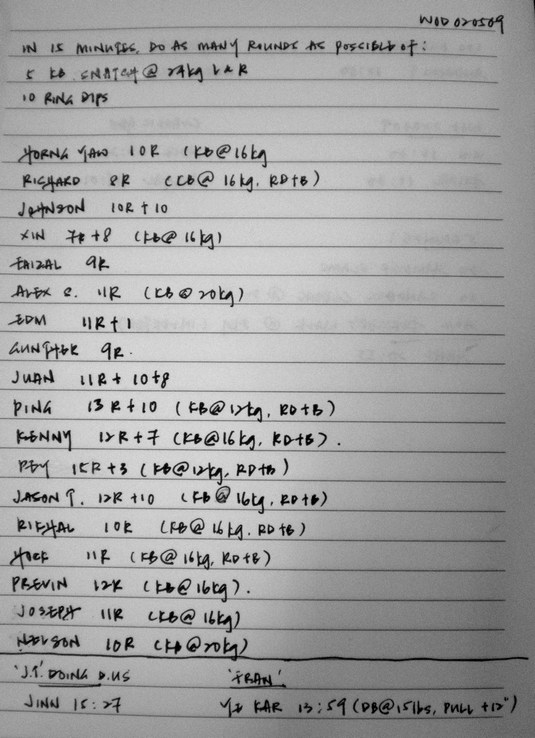 WOD 020509
IN 15 MINUTES, DO AS MANY ROUNDS AS POSSIBLE OF:
5 KB SNATCH @ 24kg L & R
10 RING DIPS
HORNG YAW 10R (KB@16kg
RICHARD 8R (KB@ 16kg, RD+B)
JOHNSON 10R + 10
XIN 7R+8 (KB@ 16kg)
FAIZAL 9R
ALEX S. 11R (KB@ 20kg)
EDM 11R + 1
GUNTHER 9R.
JUAN 11R + 10+8
PING 13R + 10 (KB@12kg, RD+B)
KENNY 12R + 7 (KB@16kg, RD+B).
PEY 15R + 3 (KB@12kg, RD+B)
JASON T. 12R +10 (KB@ 16kg, RD+B)
RIKHAL 10R (KB@ 16kg. RD+B)
HOCK 11R (KB@ 16kg, RD+B)
PREVIN 12R (KB@16kg).
JOSEPH 11R (KB@16kg)
NELSON 10R (KB@20kg)
'J.T.' DOING D.US 'FRAN'
JINN 15:27 KAR 13:59 (DB@15lbs, PULL +12")